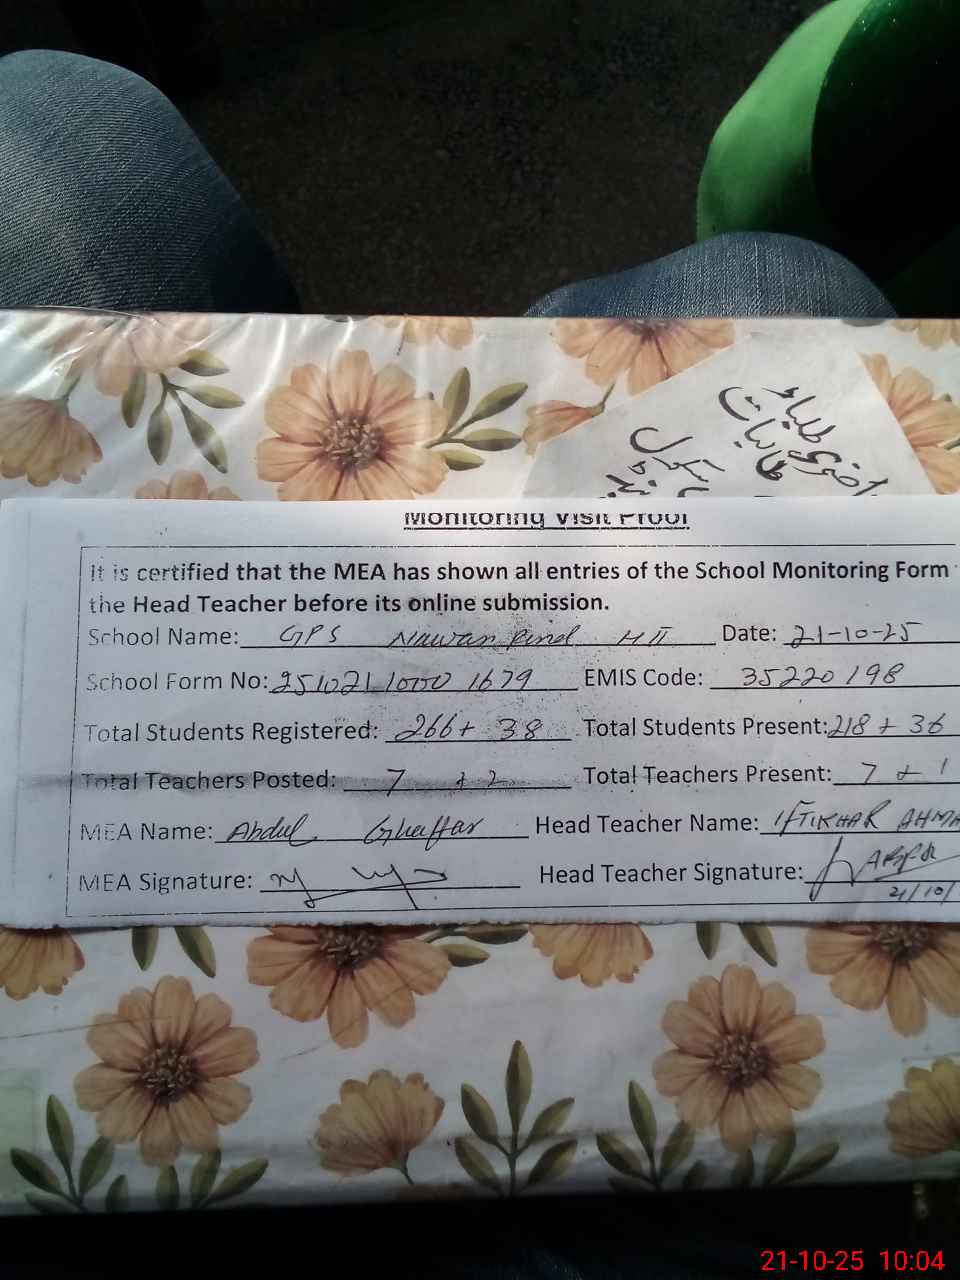 حاضری طلباء
طالبات
Monitoring Visit Proof
It is certified that the MEA has shown all entries of the School Monitoring Form
the Head Teacher before its online submission.
School Name: GPS Nawan Pind HII Date: 21-10-25
School Form No: 251021 1000 1679 EMIS Code: 35220198
Total Students Registered: 266 + 38 Total Students Present: 218 + 36
Total Teachers Posted: 7 + 2 Total Teachers Present: 7 + 1
MEA Name: Abdul Ghaffar Head Teacher Name: IFTIKHAR AHMA
MEA Signature: Head Teacher Signature:
21/10/
21-10-25 10:04